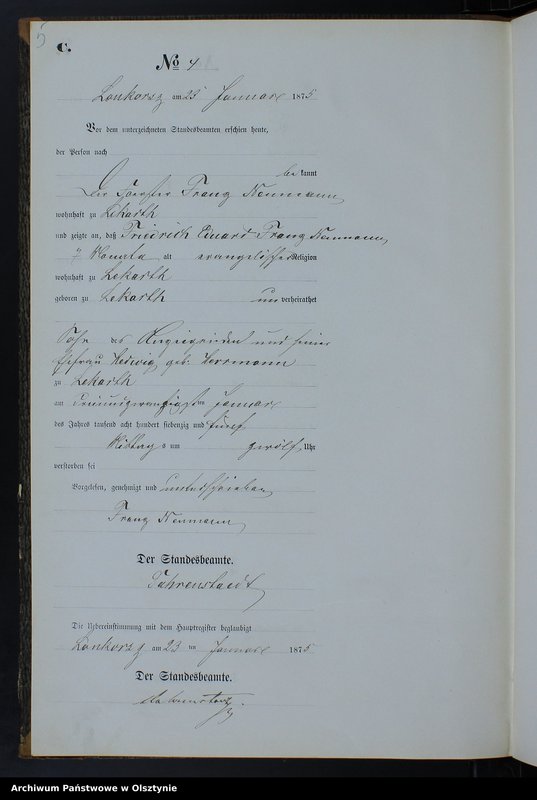 5
C.
No 4
Lonkorsz am 23 Januar 1875
Vor dem unterzeichneten Standesbeamten erschien heute,
der Person nach
bekannt
Der Foerster Franz Neumann,
wohnhaft zu Lekarth
und zeigte an, daß Friedrich Eduard Franz Neumann,
7 Monate alt evangelischer Religion
wohnhaft zu Lekarth
geboren zu Lekarth unverheirathet
Sohn des Anzeigenden und seiner
Ehefrau Hedwig geb. Herrmann
zu Lekarth
am dreiundzwanzigsten Januar
des Jahres tausend acht hundert siebenzig und fünf
Mittags um zwölf Uhr
verstorben sei
Vorgelesen, genehmigt und unterschrieben
Franz Neumann
Der Standesbeamte.
Die Uebereinstimmung mit dem Hauptregister beglaubigt
Lonkorsz am 23 ten Januar 1875
Der Standesbeamte.
Archiwum Państwowe w Olsztynie